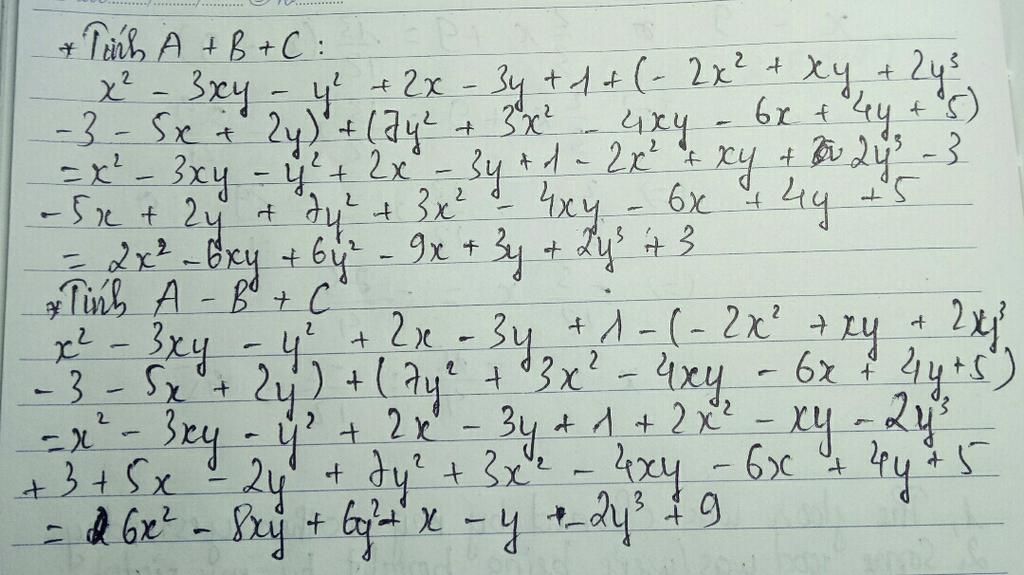 * Tính A + B + C :
x² - 3xy - y² + 2x - 3y + 1 + (- 2x² + xy + 2y³
- 3 - 5x + 2y) + (7y² + 3x² - 4xy - 6x + 4y + 5)
= x² - 3xy - y² + 2x - 3y + 1 - 2x² + xy + 2y³ - 3
- 5x + 2y + 7y² + 3x² - 4xy - 6x + 4y + 5
= 2x² - 6xy + 6y² - 9x + 3y + 2y³ + 3
* Tính A - B + C
x² - 3xy - y² + 2x - 3y + 1 - (- 2x² + xy + 2xy³
- 3 - 5x + 2y) + (7y² + 3x² - 4xy - 6x + 4y + 5)
= x² - 3xy - y² + 2x - 3y + 1 + 2x² - xy - 2y³
+ 3 + 5x - 2y + 7y² + 3x² - 4xy - 6x + 4y + 5
= 6x² - 8xy + 6y² + x - y - 2y³ + 9